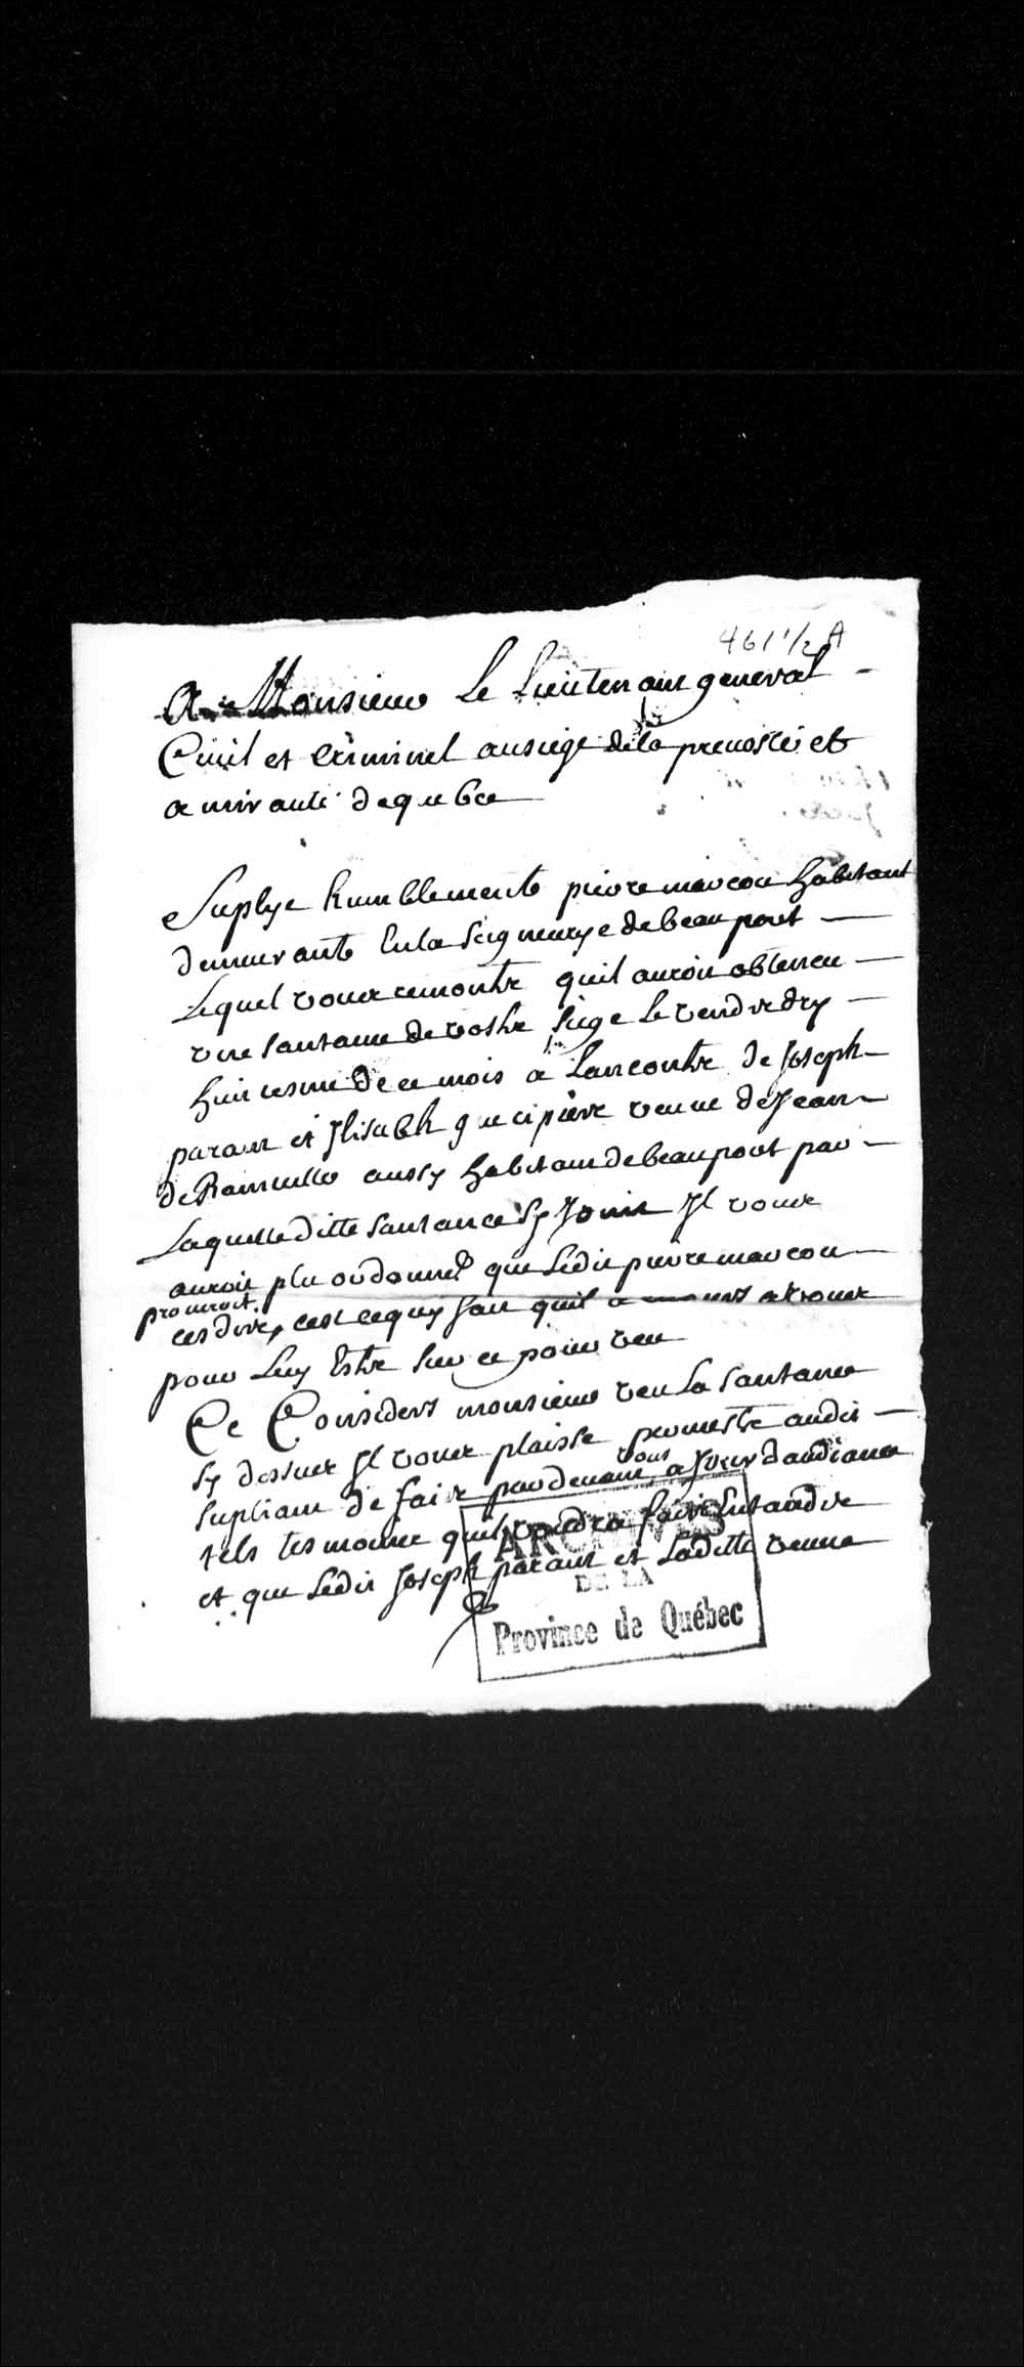 461 1/2 A
A Monsieur Le Lieutenant general
Ciuil et Criminel au siege de la preuosté et
amirauté de quebec
Suplye humblement pierre marcou habitant
demeurante En la Seigneurye de beauport
Lequel vous remontre quil auroit obteneu
vne santance de vostre siege Le vendredy
huictiesme de ce mois a Lancontre de Joseph
parant et Elisabeth
de Rainuille aussy habitant de beauport par
Laquelle ditte santance sy Joint Il vous
auroit plu ordonner que Ledit pierre marcou
prouueroit
ces dire, cest ce quy fait quil a
pour Luy Estre sur ce pourveu
Ce Considéré monsieur veu La santance
sy dessus Il vous plaisse promestre audit
supliant de faire pardeuant vous a Jour daudiance
tels tesmoins quil voudra faire Entandre
et que Ledit Joseph parant et Laditte veuue
ARCHIVES
DE LA
Province de Québec